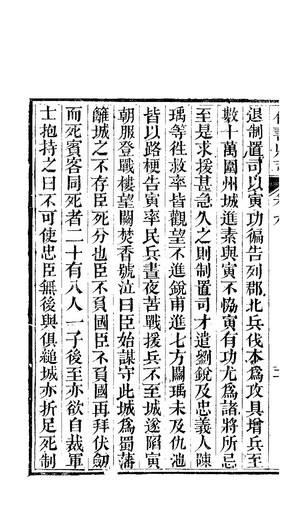 退制置司以寅功徧告列郡北兵伐木爲攻具增兵至
數十萬圍州城進素與寅不恊寅有功尤爲諸將所忌
至是求援甚急久之則制置司才遣劉銳及忠義人陳
瑀等往救率皆觀望不進銳甫進七方關瑀未及仇池
皆以路梗告寅率民兵晝夜苦戰援兵不至城遂䧟寅
朝服登戰樓望闕焚香號泣曰臣始謀守此城爲蜀藩
籬城之不存臣死分也臣不負國臣不負國再拜伏劒
而死賓客同死者二十有八人一子後至亦欲自裁軍
士抱持之曰不可使忠臣無後與俱縋城亦折足死制